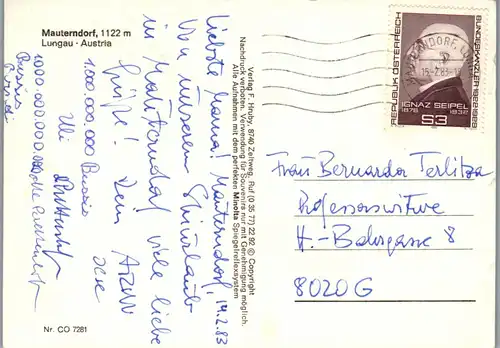 Mauterndorf, 1122 m
Lungau · Austria
Mauterndorf, 14.2.83
Liebste Mama!
Von unserem Skiurlaub
in Mauterndorf viele liebe
Grüße! Dein
1.000.000.000 Bussis
Uli
Bussis
Nr. CO 7281
Verlag F. Hruby, 8740 Zeltweg, Ruf (0 35 77) 22 92 © Copyright
Nachdruck verboten. Verwendung für Souvenirs nur mit Genehmigung möglich.
Alle Aufnahmen mit dem perfekten Minolta Spiegelreflexsystem
MAUTERNDORF, LUNGAU
15.-2.83-
REPUBLIK ÖSTERREICH
BUNDESKANZLER 1922-1929
IGNAZ SEIPEL
1876 1932
S3
Frau Bernarda Terlitza
Professorswitwe
H.-Bahrgasse 8
8020 G